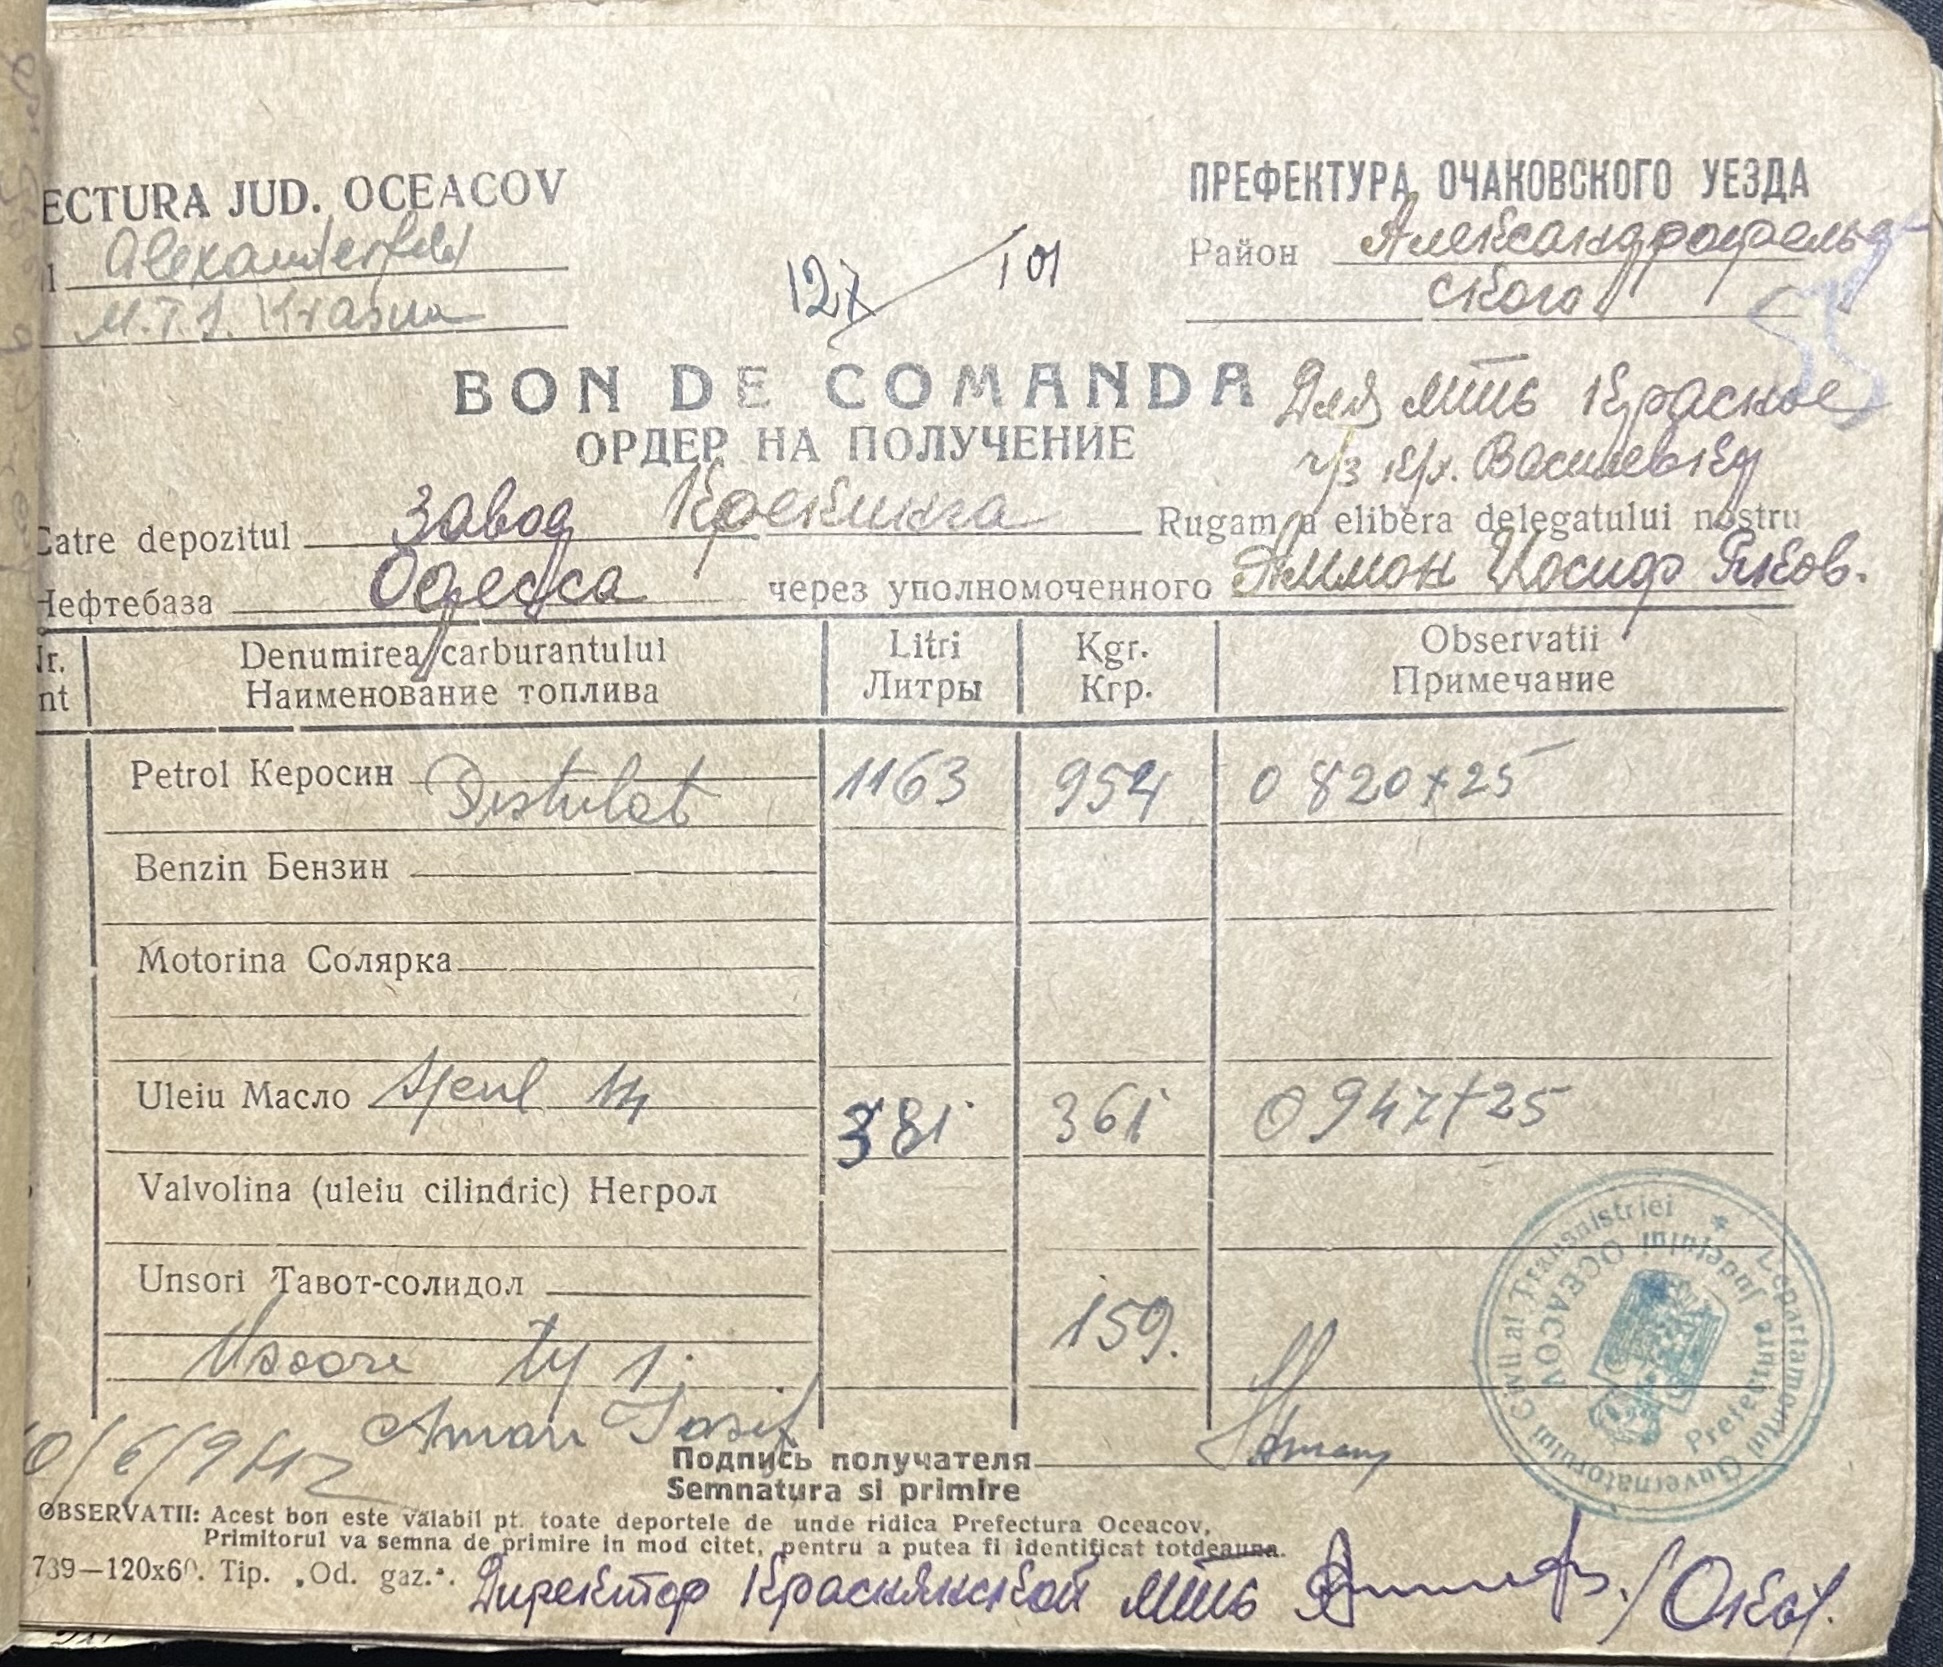 ECTURA JUD. OCEACOV
ПРЕФЕКТУРА ОЧАКОВСКОГО УЕЗДА
Alexanderfeld
Район Александрофельд-
M.T.S. Krasna
ского
127 / 101
BON DE COMANDA
Для МТС Красное
ОРДЕР НА ПОЛУЧЕНИЕ
ч/з Василевку
Catre depozitul Завод Крекинга Rugam a elibera delegatului nostru
Нефтебаза Одесса через уполномоченного Аммон Иосиф Яков.
Nr. Denumirea carburantului Litri Kgr. Observatii
nt Наименование топлива Литры Кгр. Примечание
Petrol Керосин Distulat 1163 954 0 820+25
Benzin Бензин
Motorina Солярка
Uleiu Масло 14 381 361 0 947+25
Valvolina (uleiu cilindric) Негрол
Unsori Тавот-солидол
159.
Aman Iosif
0/6/942
Подпись получателя
Semnatura si primire
OBSERVATII: Acest bon este valabil pt. toate deportele de unde ridica Prefectura Oceacov,
Primitorul va semna de primire in mod citet, pentru a putea fi identificat totdeauna.
739—120x60. Tip. „Od. gaz.".
Директор Краснянской МТС
Guvernatorului Civil al Transnistriei * Departamentul
Prefectura Județului OCEACOV